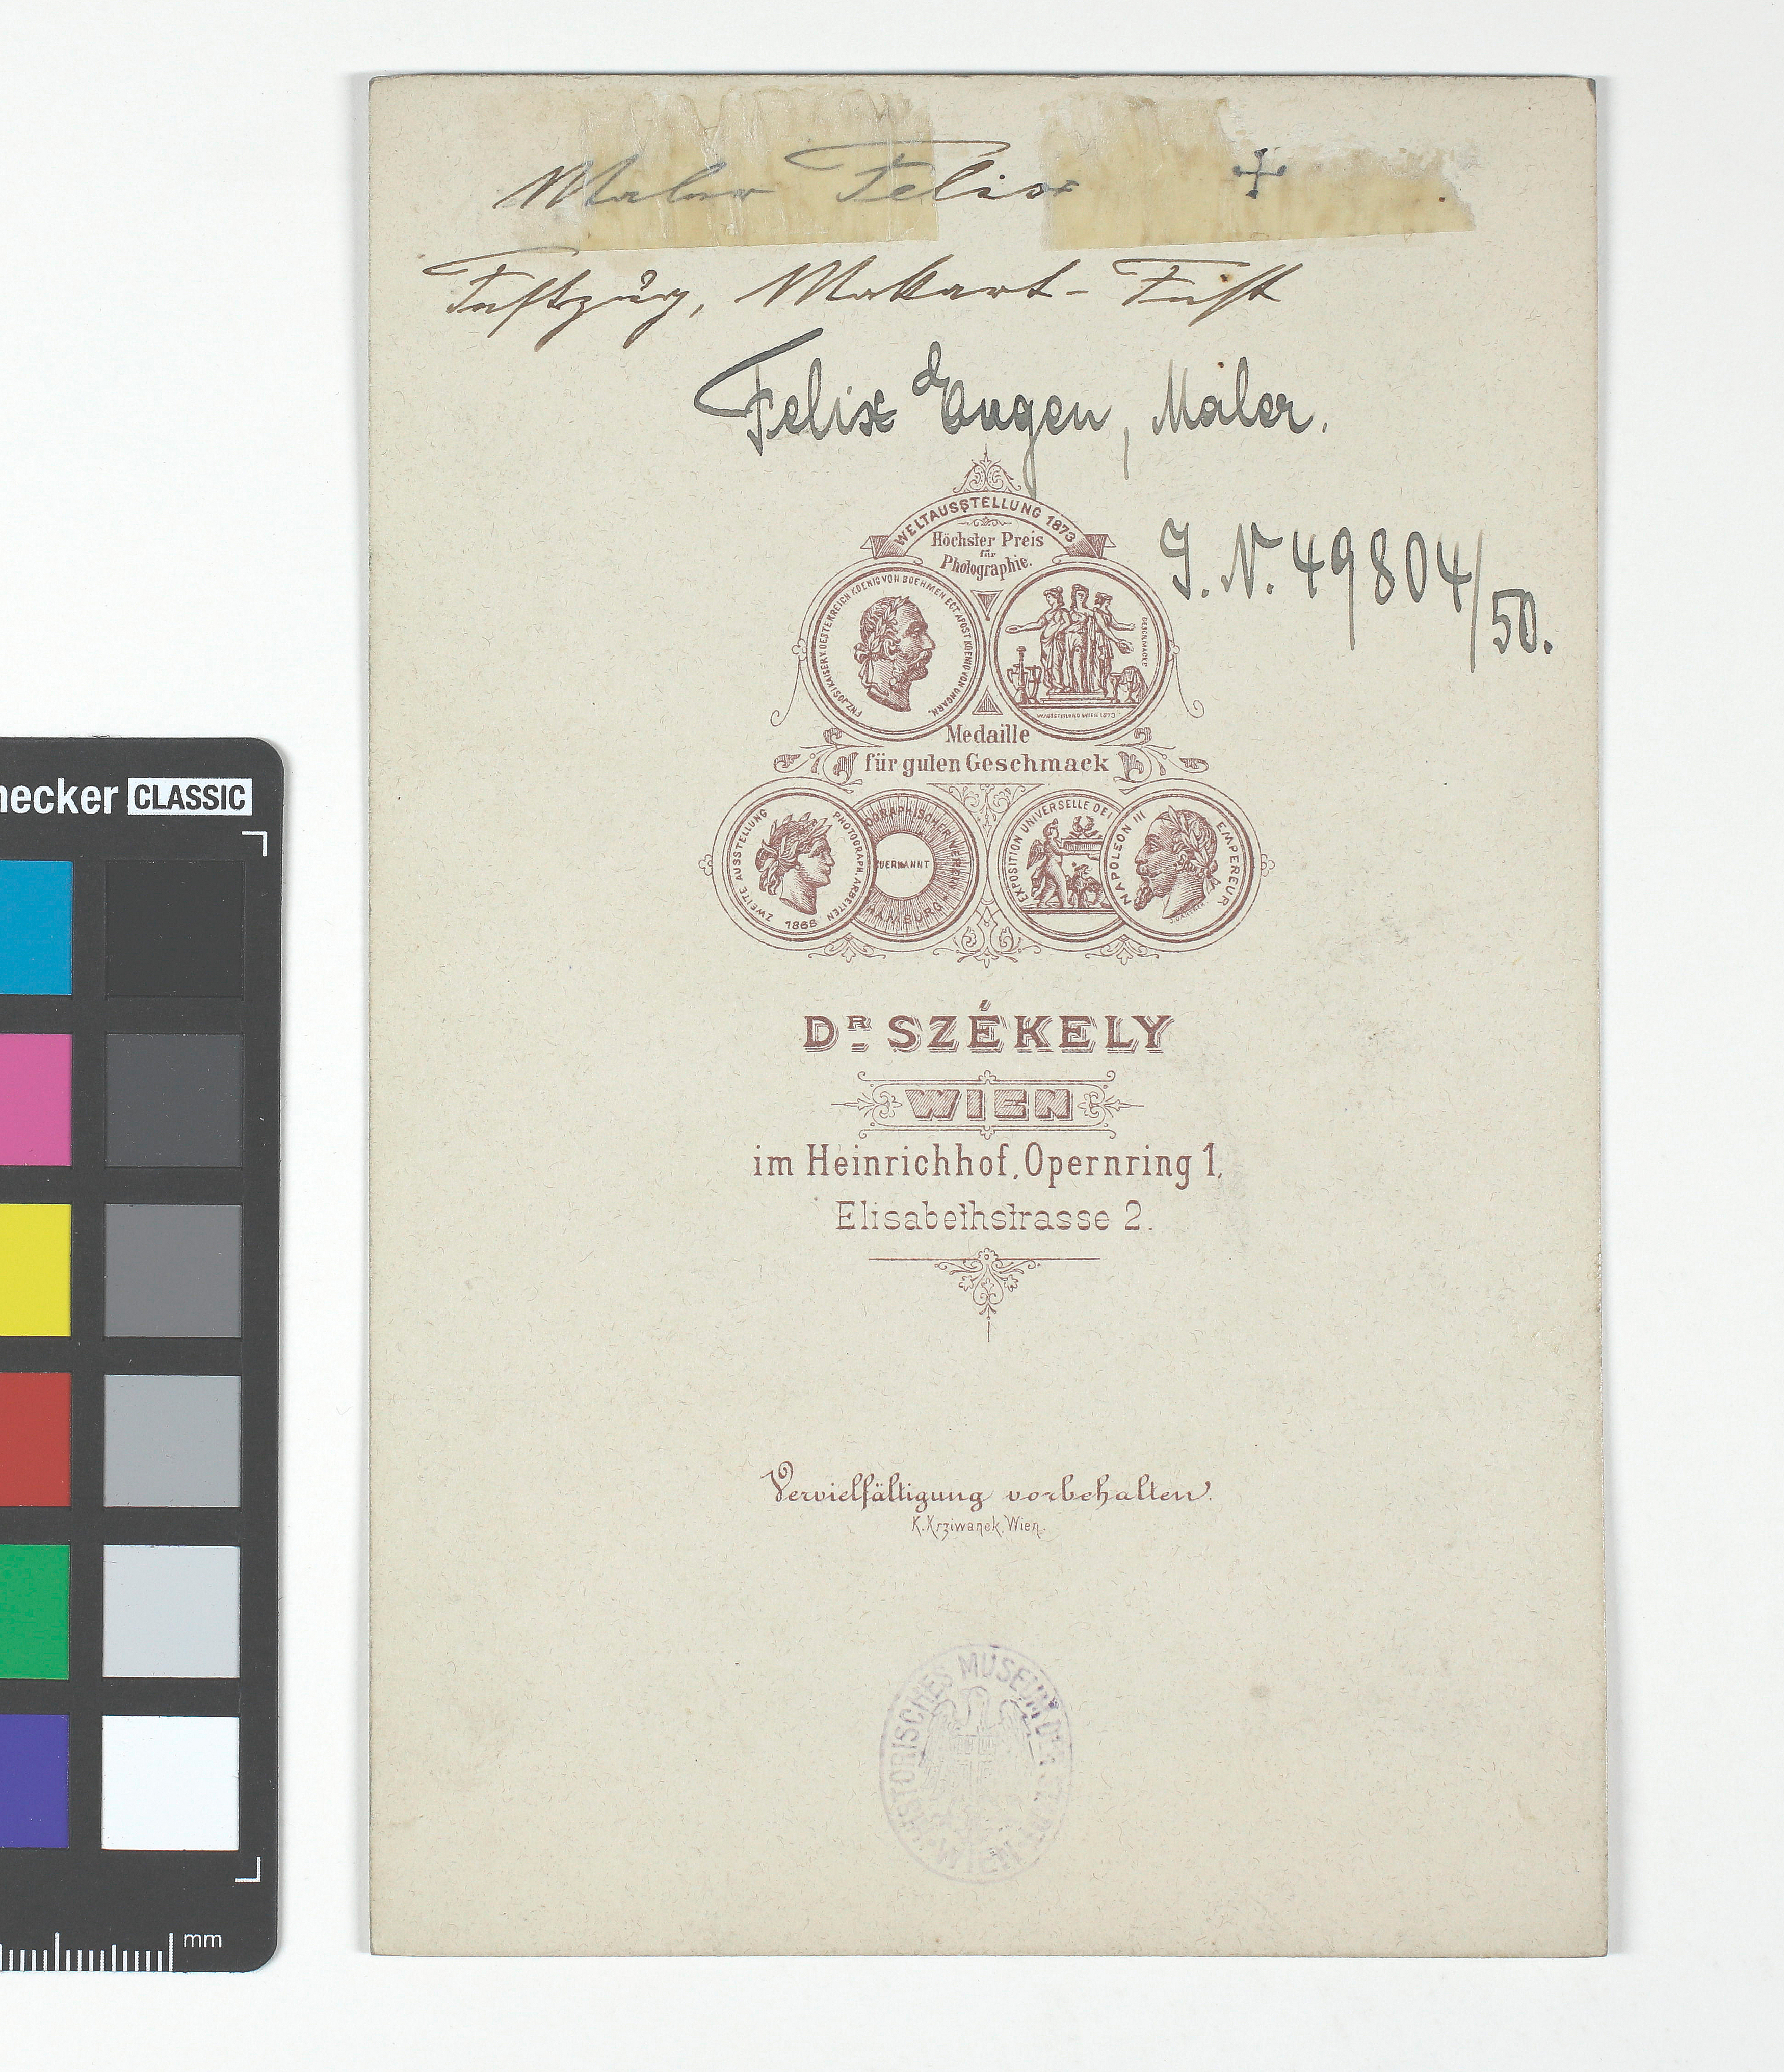 Maler Felix +
Festzug, Makart-Fest
Felix Eugen, Maler.
J. N. 49804/50.
WELTAUSSTELLUNG 1873
Höchster Preis
für
Photographie.
FRZ. JOS. I KAISER V. OESTERREICH KOENIG VON BOEHMEN ECT. APOST. KOENIG VON UNGARN.
Medaille
für guten Geschmack
ZWEITE AUSSTELLUNG PHOTOGRAPH. ARBEITEN
1868
OGRAPHISCHER VEREIN
UERKANNT
HAMBURG
EXPOSITION UNIVERSELLE DE
NAPOLEON III EMPEREUR
DR SZÉKELY
WIEN
im Heinrichhof, Opernring 1,
Elisabethstrasse 2.
Vervielfältigung vorbehalten.
K. Krziwanek, Wien.
HISTORISCHES MUSEUM DER STADT WIEN
hecker CLASSIC
mm